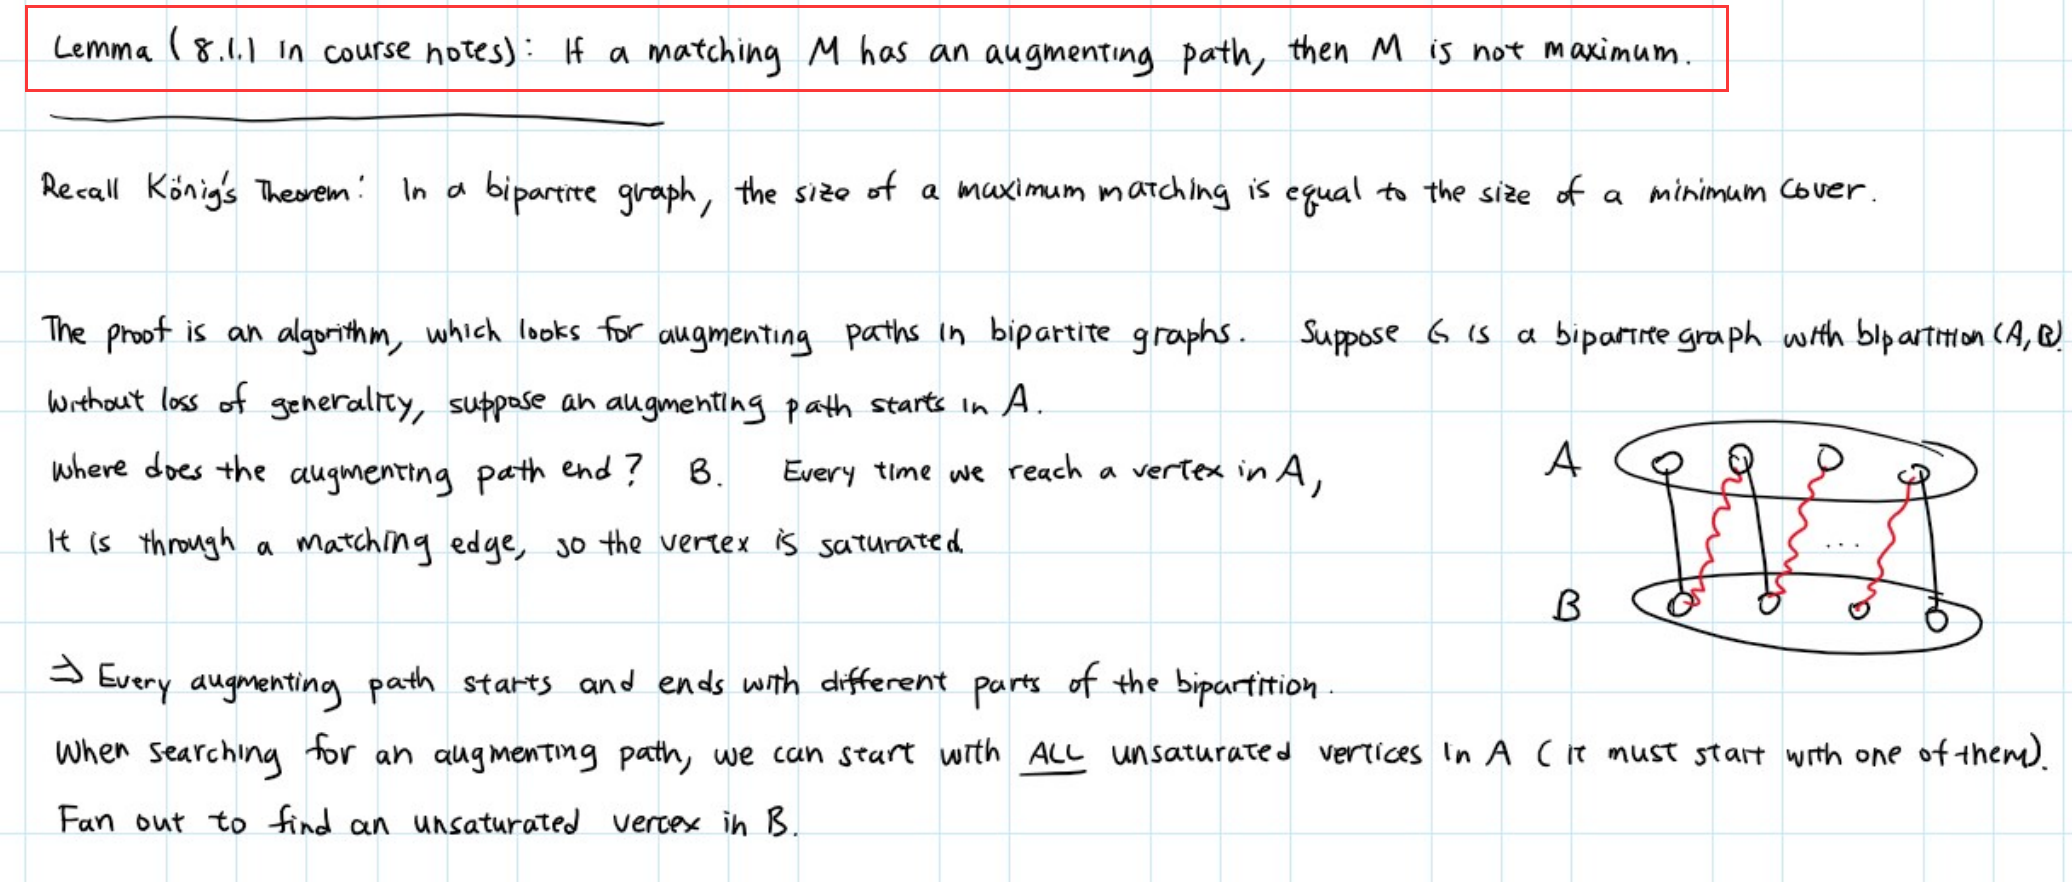 Lemma (8.1.1 in course notes): If a matching M has an augmenting path, then M is not maximum.
Recall König's Theorem: In a bipartite graph, the size of a maximum matching is equal to the size of a minimum cover.
The proof is an algorithm, which looks for augmenting paths in bipartite graphs. Suppose G is a bipartite graph with bipartition (A,B).
Without loss of generality, suppose an augmenting path starts in A.
Where does the augmenting path end? B. Every time we reach a vertex in A,
It is through a matching edge, so the vertex is saturated.
A
...
B
⇒ Every augmenting path starts and ends with different parts of the bipartition.
When searching for an augmenting path, we can start with ALL unsaturated vertices in A (it must start with one of them).
Fan out to find an unsaturated vertex in B.